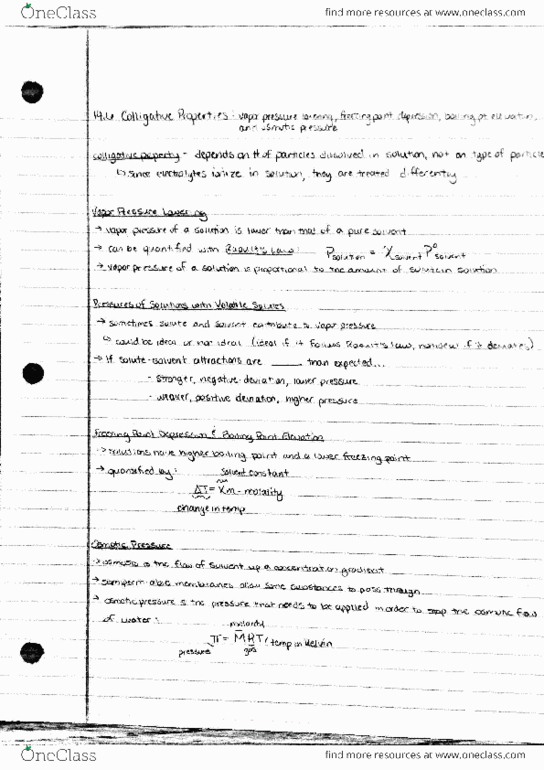 OneClass
find more resources at www.oneclass.com
14.6 Colligative Properties: vapor pressure lowering, freezing point depression, boiling pt elevation,
and osmotic pressure
colligative property - depends on # of particles dissolved in solution, not on type of particle
↳ since electrolytes ionize in solution, they are treated differently
Vapor Pressure Lowering
→ vapor pressure of a solution is lower than that of a pure solvent
→ can be quantified with Raoult's Law: Psolution = Χsolvent P°solvent
→ vapor pressure of a solution is proportional to the amount of solute in solution
Pressures of Solutions with Volatile Solutes
→ sometimes solute and solvent contribute to vapor pressure
↳ could be ideal or not ideal (ideal if it follows Raoult's law, nonideal if it deviates)
→ If solute-solvent attractions are ____ than expected...
- stronger, negative deviation, lower pressure
- weaker, positive deviation, higher pressure
Freezing Point Depression & Boiling Point Elevation
→ solutions have higher boiling point and a lower freezing point
→ quantified by: solvent constant
ΔT = Km - molality
change in temp
Osmotic Pressure
→ osmosis is the flow of solvent up a concentration gradient
→ semipermeable membranes allow some substances to pass through
→ osmotic pressure is the pressure that needs to be applied in order to stop the osmotic flow
of water: molarity
π = MRT temp in Kelvin
pressure gas
OneClass
find more resources at www.oneclass.com